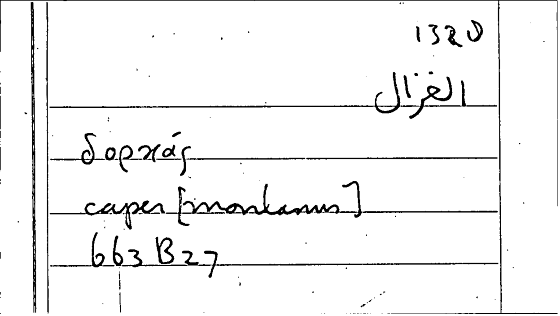 1328
الغزال
δορκάς
caper [montanus]
663 B 27